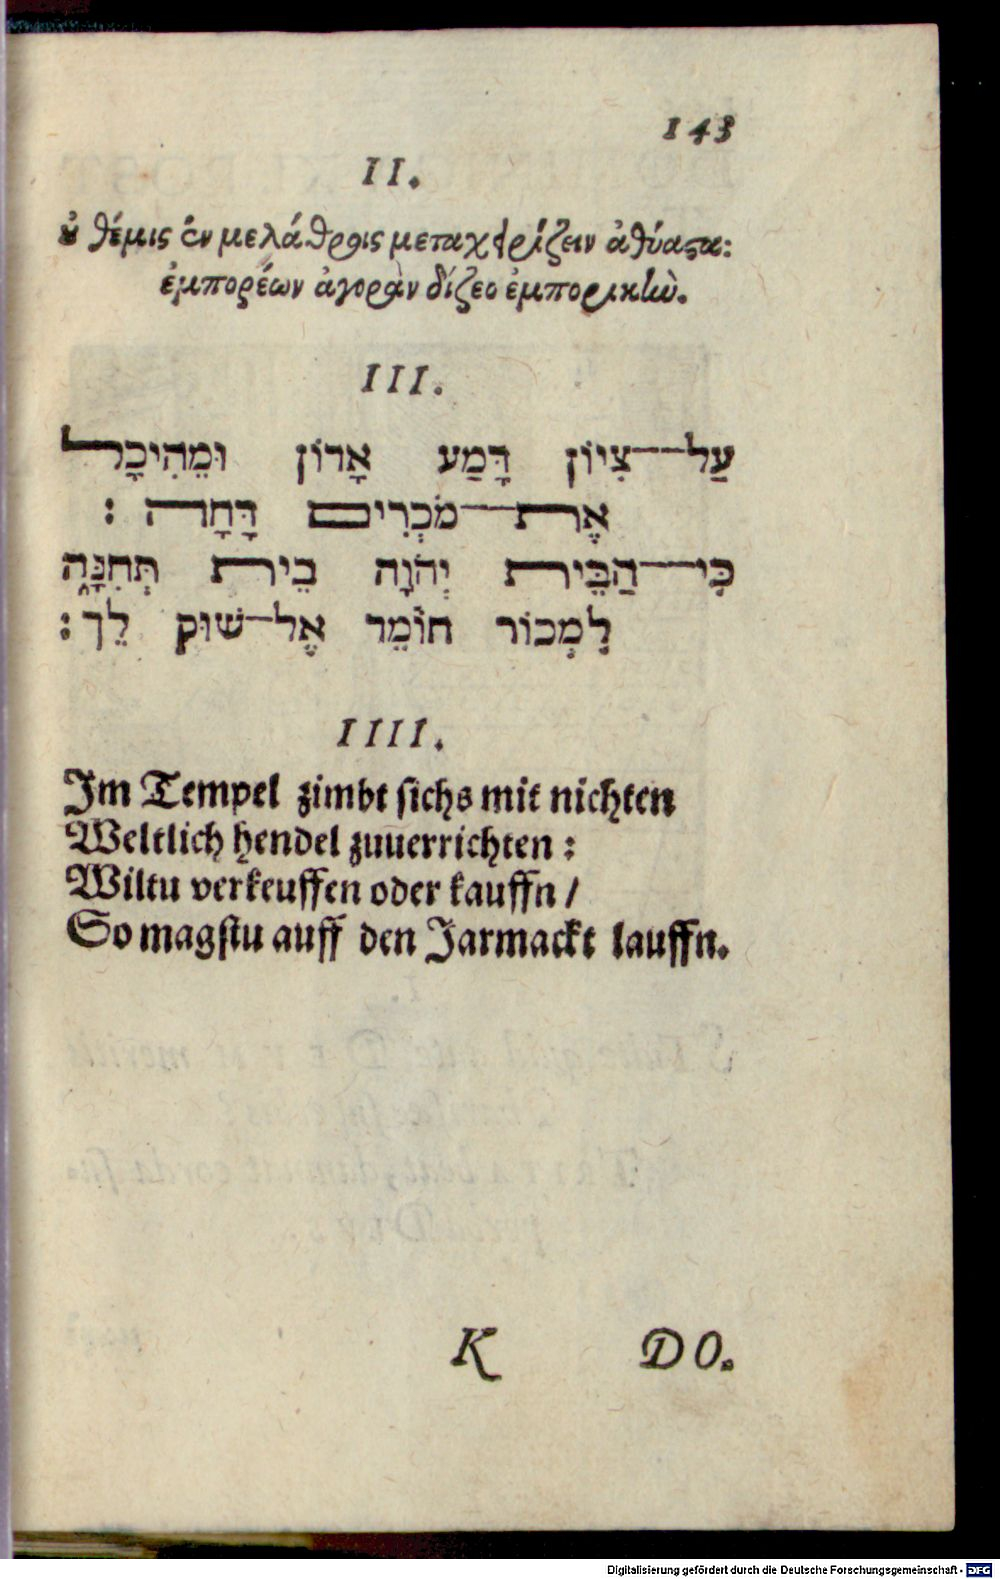 143
II.
οὐ θέμις ἐν μελάθροις μεταχειρίζειν ἀθύαστα:
ἐμπορέων ἀγορὰν δίζεο ἐμπορικῶ.
III.
עַל־צִיּוֹן דָּמַע אָדוֹן וּמֵהִיכָל
אֶת־מֹכְרִים דָּחָה :
כִּי־הַבֵּית יְהֹוָה בֵית תְּחִנָּה
לִמְכוֹר חוֹמֵר אֶל־שׁוּק לֵך :
IIII.
Im Tempel zimbt sichs mit nichten
Weltlich hendel zuuerrichten :
Wiltu verkeuffen oder kauffn /
So magstu auff den Jarmackt lauffn.
K DO.
Digitalisierung gefördert durch die Deutsche Forschungsgemeinschaft - DFG